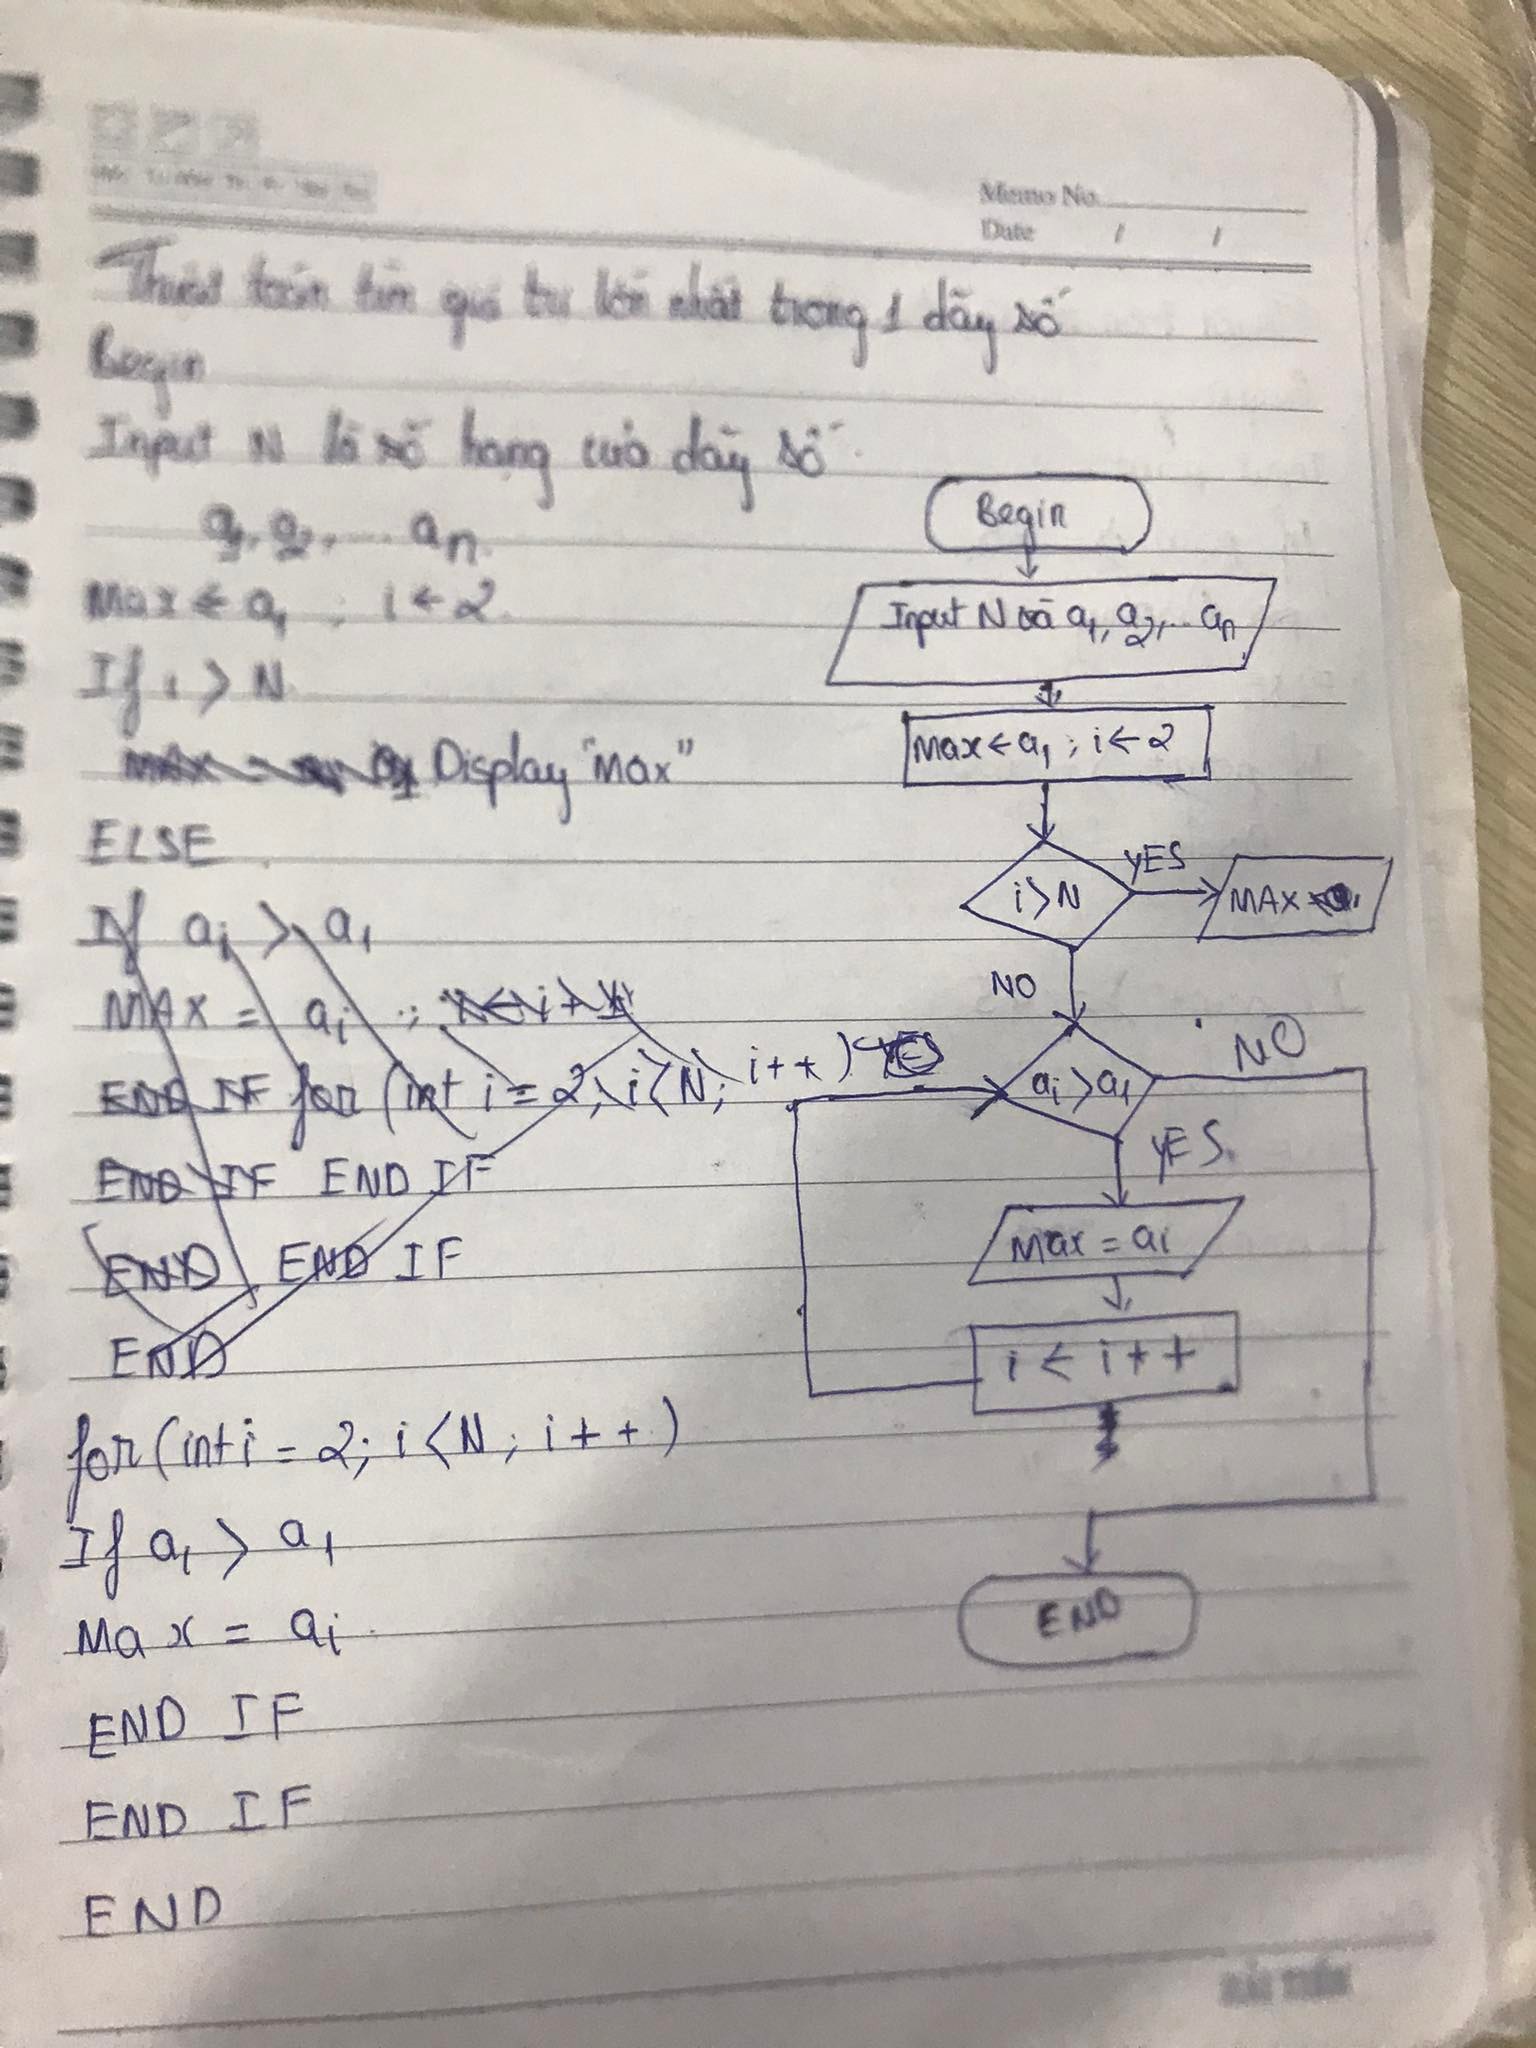 Memo No.
Date / /
Thuật toán tìm giá trị lớn nhất trong 1 dãy số
Begin
Input N là số hạng của dãy số
a1, a2, ... an
Max ← a1 ; i ← 2
If i > N
Display "Max"
ELSE
If ai > a1
MAX = ai ; i ← i + 1
END IF for (int i = 2; i < N; i++)
END IF END IF
END END IF
END
for (int i = 2; i < N; i++)
If a1 > a1
Max = ai
END IF
END IF
END
Begin
Input N và a1, a2, ... an
Max ← a1 ; i ← 2
i > N
YES
MAX
NO
ai > a1
NO
YES
Max = ai
i ← i++
END
HẢI TIẾN